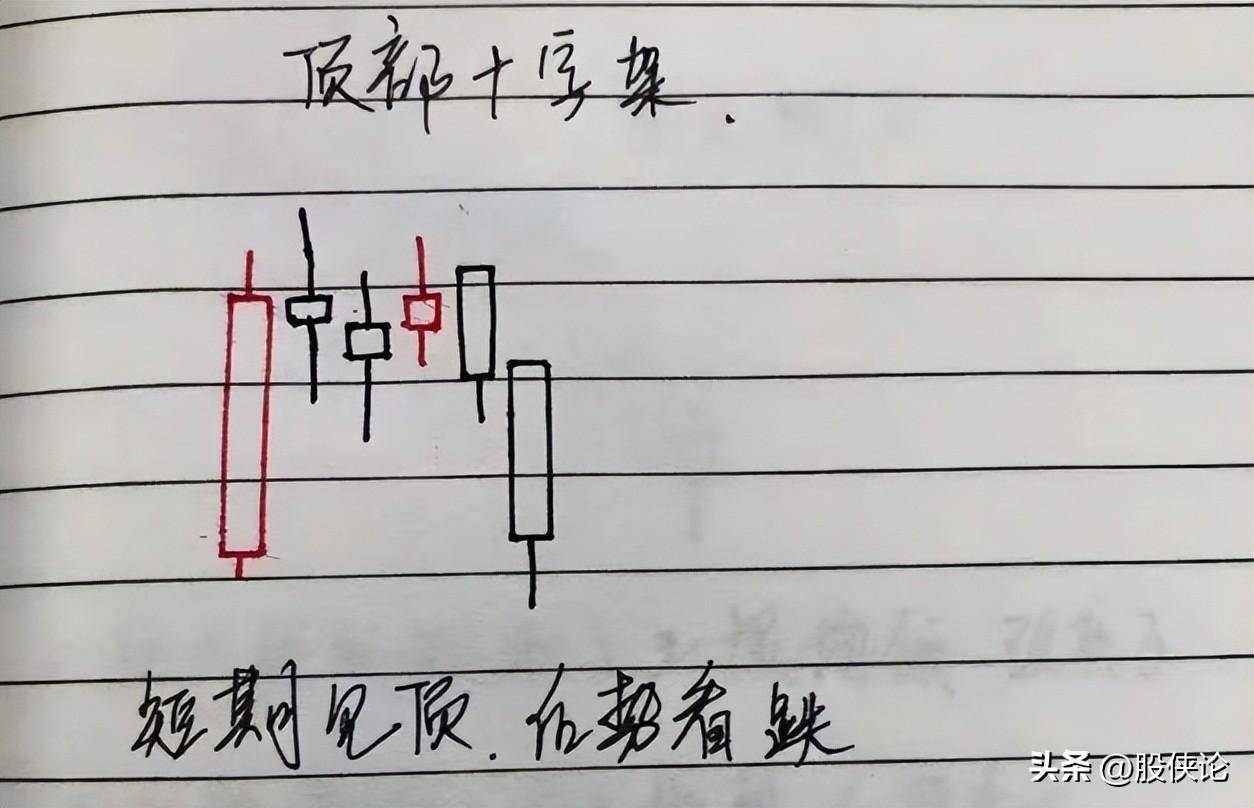 顶部十字架.
短期见顶.后势看跌
头条 @股侠论